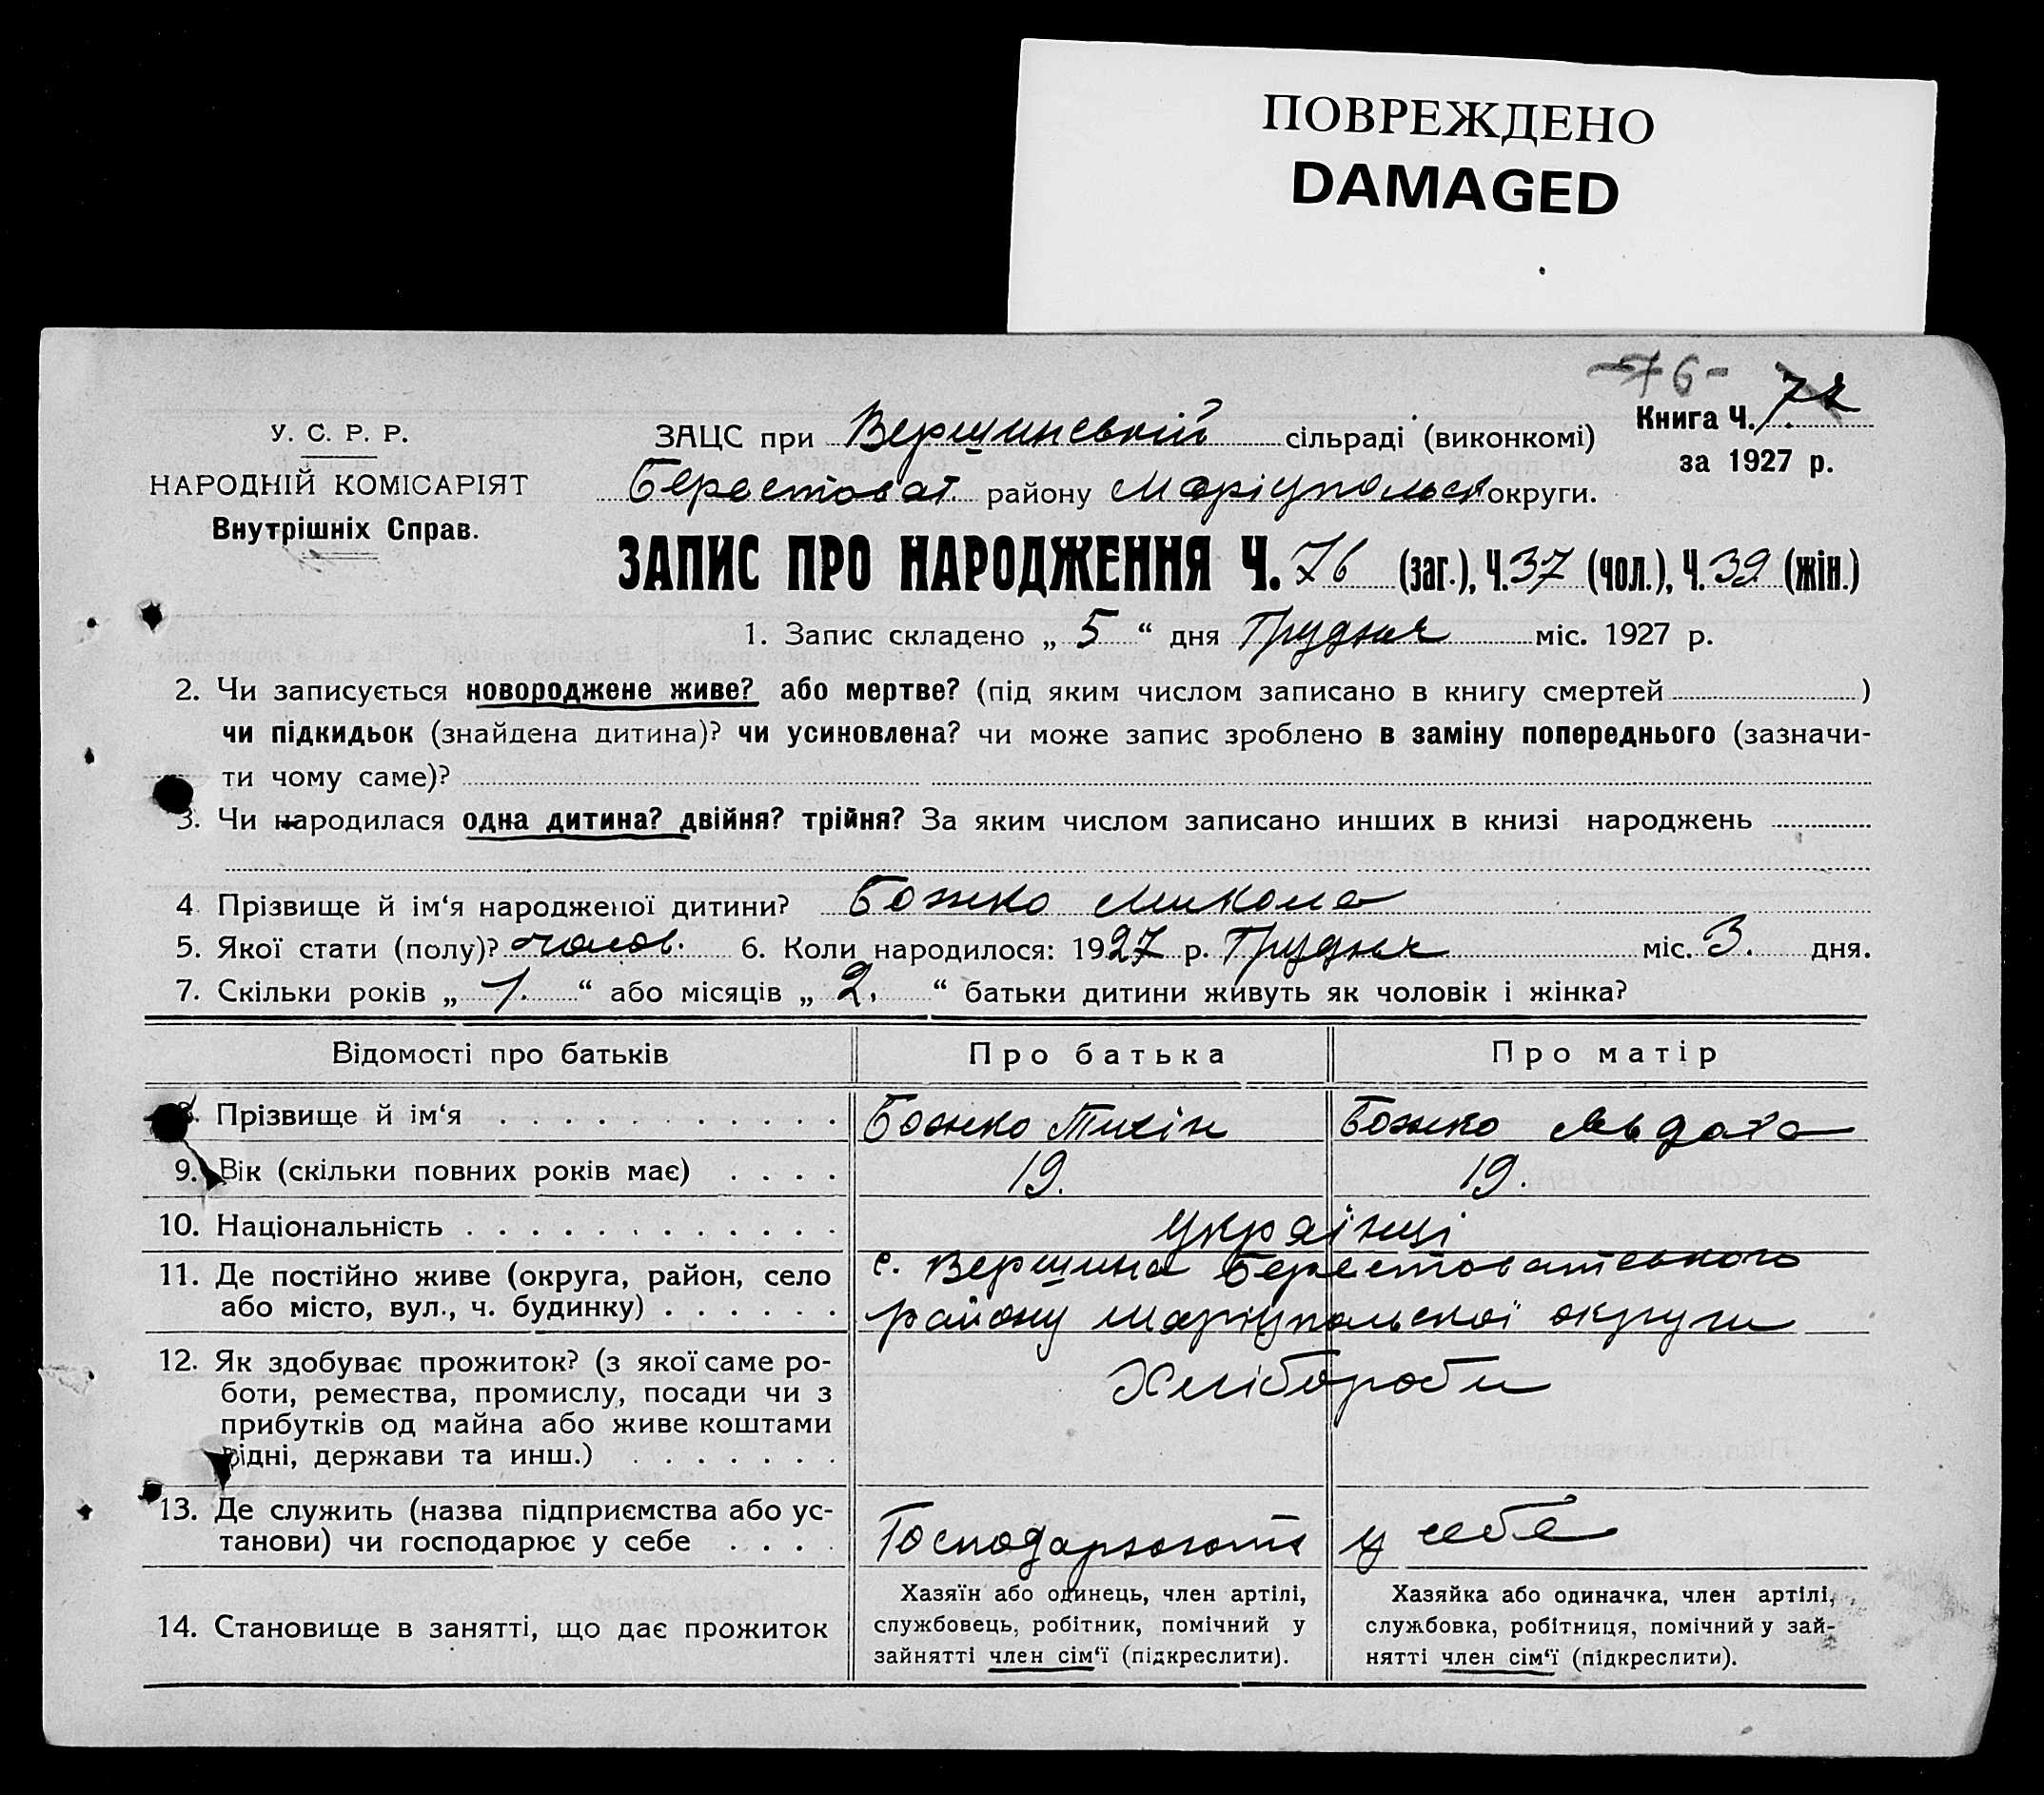 ПОВРЕЖДЕНО
DAMAGED
-76-
У. С. Р. Р.
НАРОДНІЙ КОМІСАРІЯТ
Внутрішніх Справ.
ЗАЦС при Вершинській сільраді (виконкомі)
Берестоват. району Маріупольськ округи.
Книга Ч. 1.
за 1927 р.
ЗАПИС ПРО НАРОДЖЕННЯ Ч. 76 (заг.), Ч. 37 (чол.), Ч. 39 (жін.)
1. Запис складено „ 5 “ дня Грудня міс. 1927 р.
2. Чи записується новороджене живе? або мертве? (під яким числом записано в книгу смертей )
чи підкидьок (знайдена дитина)? чи усиновлена? чи може запис зроблено в заміну попереднього (зазначи-
ти чому саме)?
3. Чи народилася одна дитина? двійня? трійня? За яким числом записано инших в книзі народжень
4. Прізвище й ім‘я народженої дитини? Божко Микола
5. Якої стати (полу)? чолов. 6. Коли народилося: 1927 р. Грудня міс. 3. дня.
7. Скільки років „ 1. “ або місяців „ 2. “ батьки дитини живуть як чоловік і жінка?
Відомості про батьків Про батька Про матір
8. Прізвище й ім‘я Божко Тихін Божко Явдоха
9. Вік (скільки повних років має) 19. 19.
10. Національність українці
11. Де постійно живе (округа, район, село с. Вершина Берестоватського
або місто, вул., ч. будинку) району Маріупольскої округи
12. Як здобуває прожиток? (з якої саме ро-
боти, ремества, промислу, посади чи з
прибутків од майна або живе коштами
рідні, держави та инш.)
Хлібороби
13. Де служить (назва підприємства або ус-
танови) чи господарює у себе
Господарюють у себе
14. Становище в занятті, що дає прожиток
Хазяїн або одинець, член артілі,
службовець, робітник, помічний у
зайнятті член сім‘ї (підкреслити).
Хазяйка або одиначка, член артілі,
службовка, робітниця, помічний у зай-
нятті член сім‘ї (підкреслити).